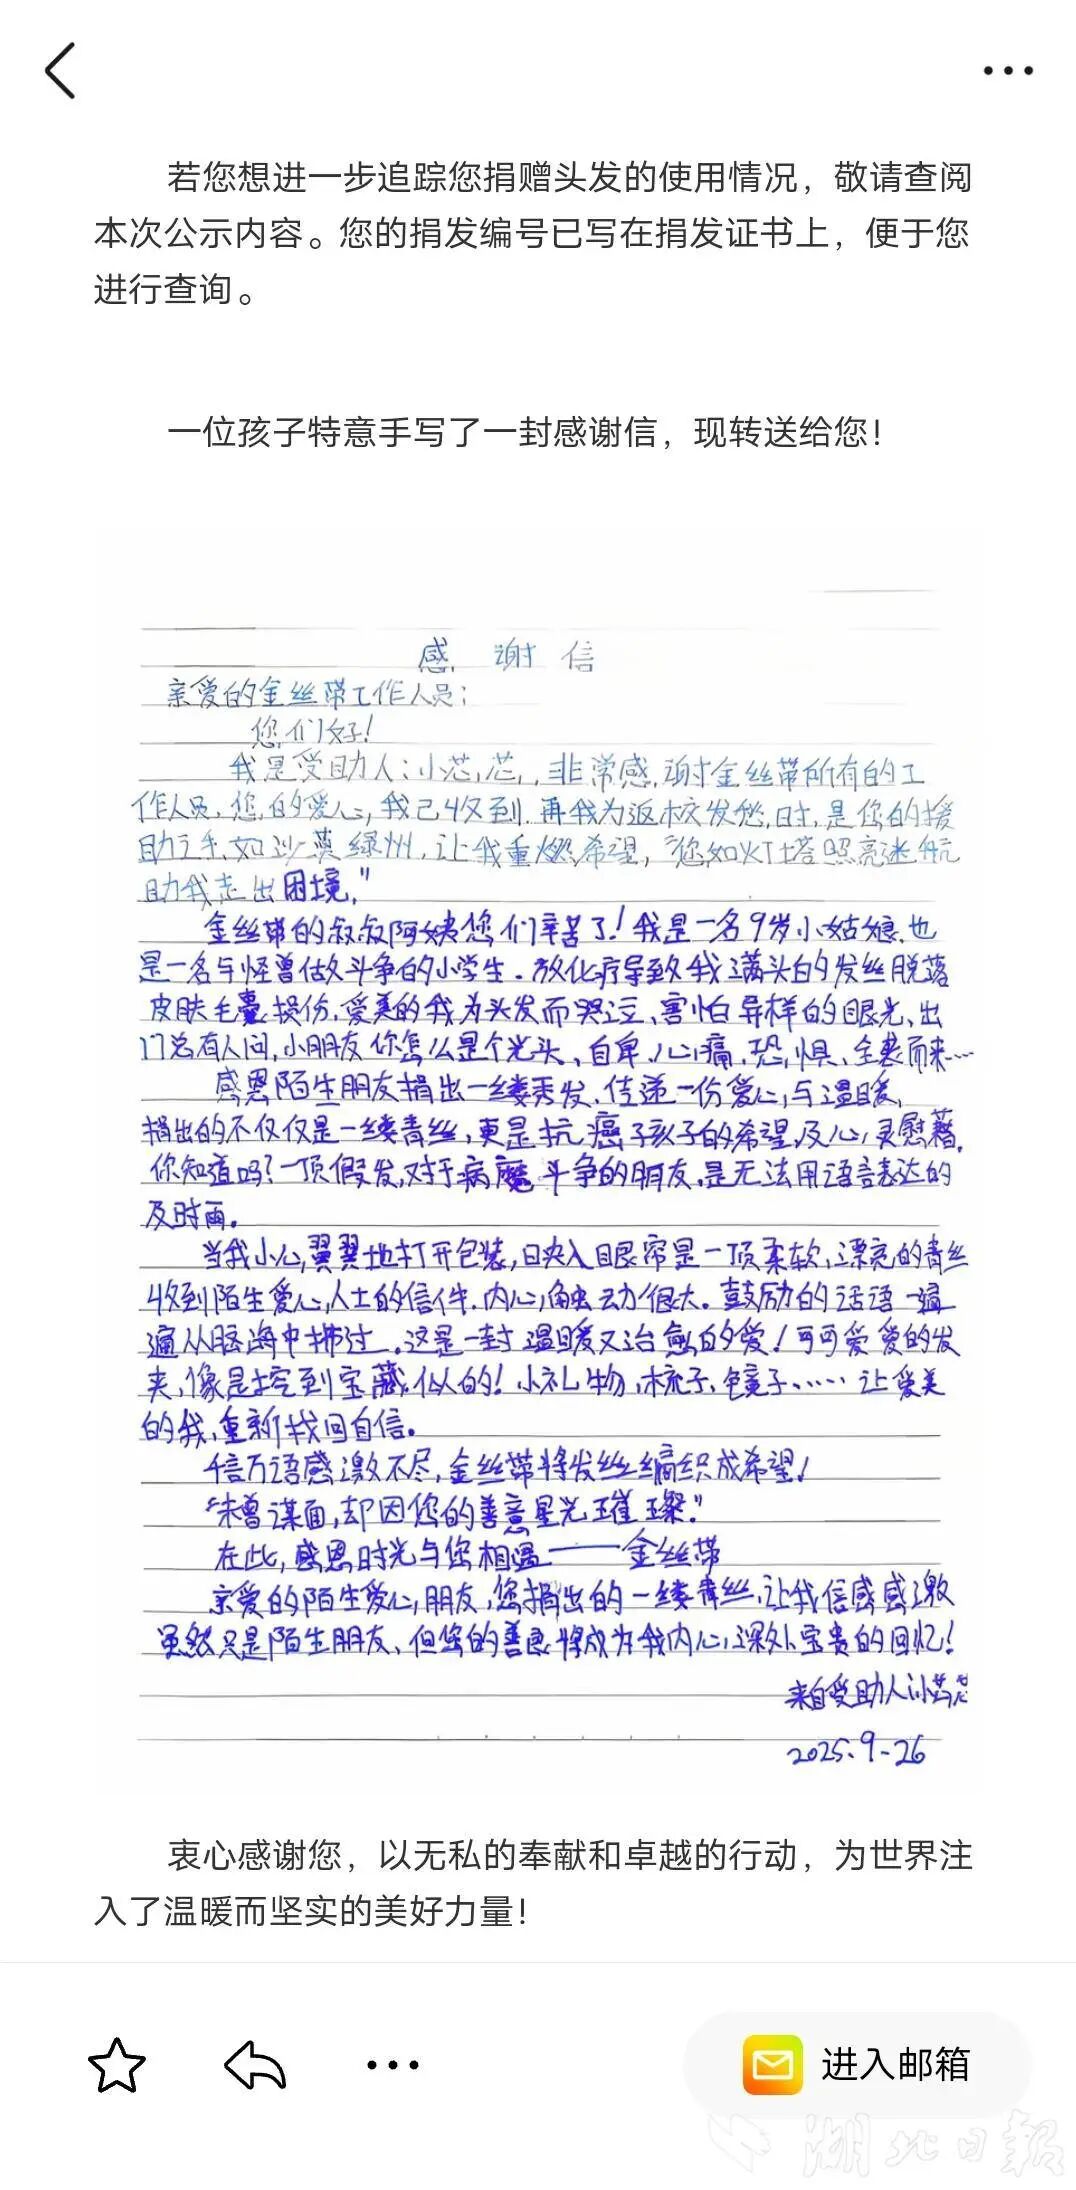 若您想进一步追踪您捐赠头发的使用情况，敬请查阅
本次公示内容。您的捐发编号已写在捐发证书上，便于您
进行查询。
一位孩子特意手写了一封感谢信，现转送给您！
感谢信
亲爱的金丝带工作人员：
您们好！
我是受助人：小芯芯，非常感谢金丝带所有的工
作人员，您的爱心，我已收到，再我为返校发愁时，是您的援
助之手，如沙漠绿州，让我重燃希望，“您如灯塔照亮迷航
助我走出困境，”
金丝带的叔叔阿姨您们辛苦了！我是一名9岁小姑娘，也
是一名与怪兽做斗争的小学生。放化疗导致我满头的发丝脱落
皮肤毛囊损伤，爱美的我为头发而哭泣、害怕异样的眼光、出
门总有人问，小朋友你怎么是个光头、自卑、心痛、恐惧、全袭而来……
感恩陌生朋友捐出一缕秀发，传递一份爱心与温暖，
捐出的不仅仅是一缕青丝，更是抗癌子孩子的希望及心灵慰藉，
你知道吗？一顶假发，对于病魔斗争的朋友，是无法用语言表达的
及时雨。
当我小心翼翼地打开包装，映入眼帘是一顶柔软，漂亮的青丝
收到陌生爱心人士的信件，内心触动很大。鼓励的话语一遍
遍从脑海中拂过。这是一封温暖又治愈的爱！可可爱爱的发
夹，像是挖到宝藏似的！小礼物，梳子、镜子……让爱美
的我，重新找回自信。
千言万语感激不尽，金丝带将发丝编织成希望！
“未曾谋面，却因您的善意星光璀璨。”
在此，感恩时光与您相遇——金丝带
亲爱的陌生爱心朋友，您捐出的一缕青丝，让我倍感感激
虽然只是陌生朋友、但您的善良将成为我内心深处宝贵的回忆！
来自受助人小芯芯
2025.9-26
衷心感谢您，以无私的奉献和卓越的行动，为世界注
入了温暖而坚实的美好力量！
进入邮箱
湖北日报